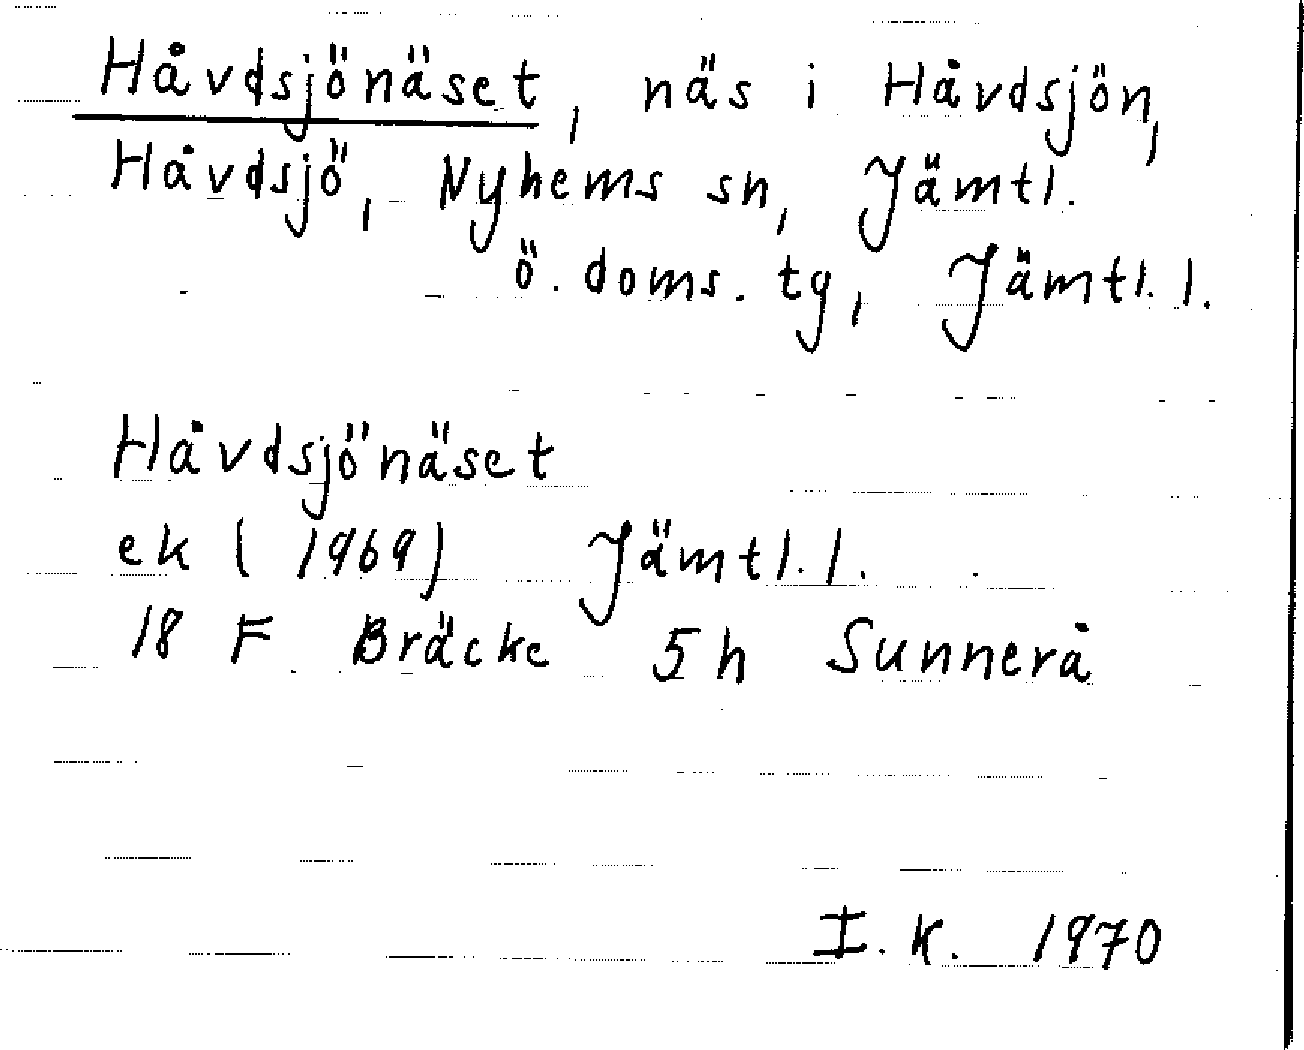 Håvdsjönäset, näs i Håvdsjön,
Håvdsjö, Nyhems sn, Jämtl.
ö. doms. tg, Jämtl. l.
Håvdsjönäset
ek (1969) Jämtl. l.
18 F Bräcke 5h Sunnerå
I. K. 1970